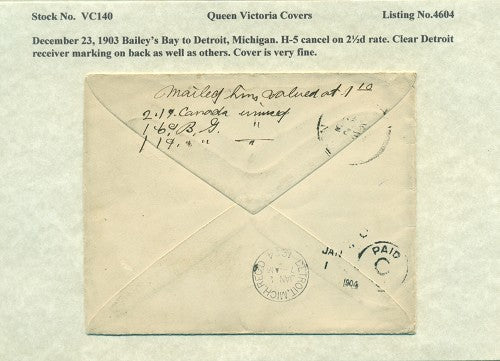 Stock No. VC140 Queen Victoria Covers Listing No.4604
December 23, 1903 Bailey's Bay to Detroit, Michigan. H-5 cancel on 2½d rate. Clear Detroit
receiver marking on back as well as others. Cover is very fine.
Mailed him valued at 1
Canada unused
B. G. "
" "
JAN
1
1904
PAID
C
DETROIT, MICH. REC'D
JAN 1
7 AM
1904